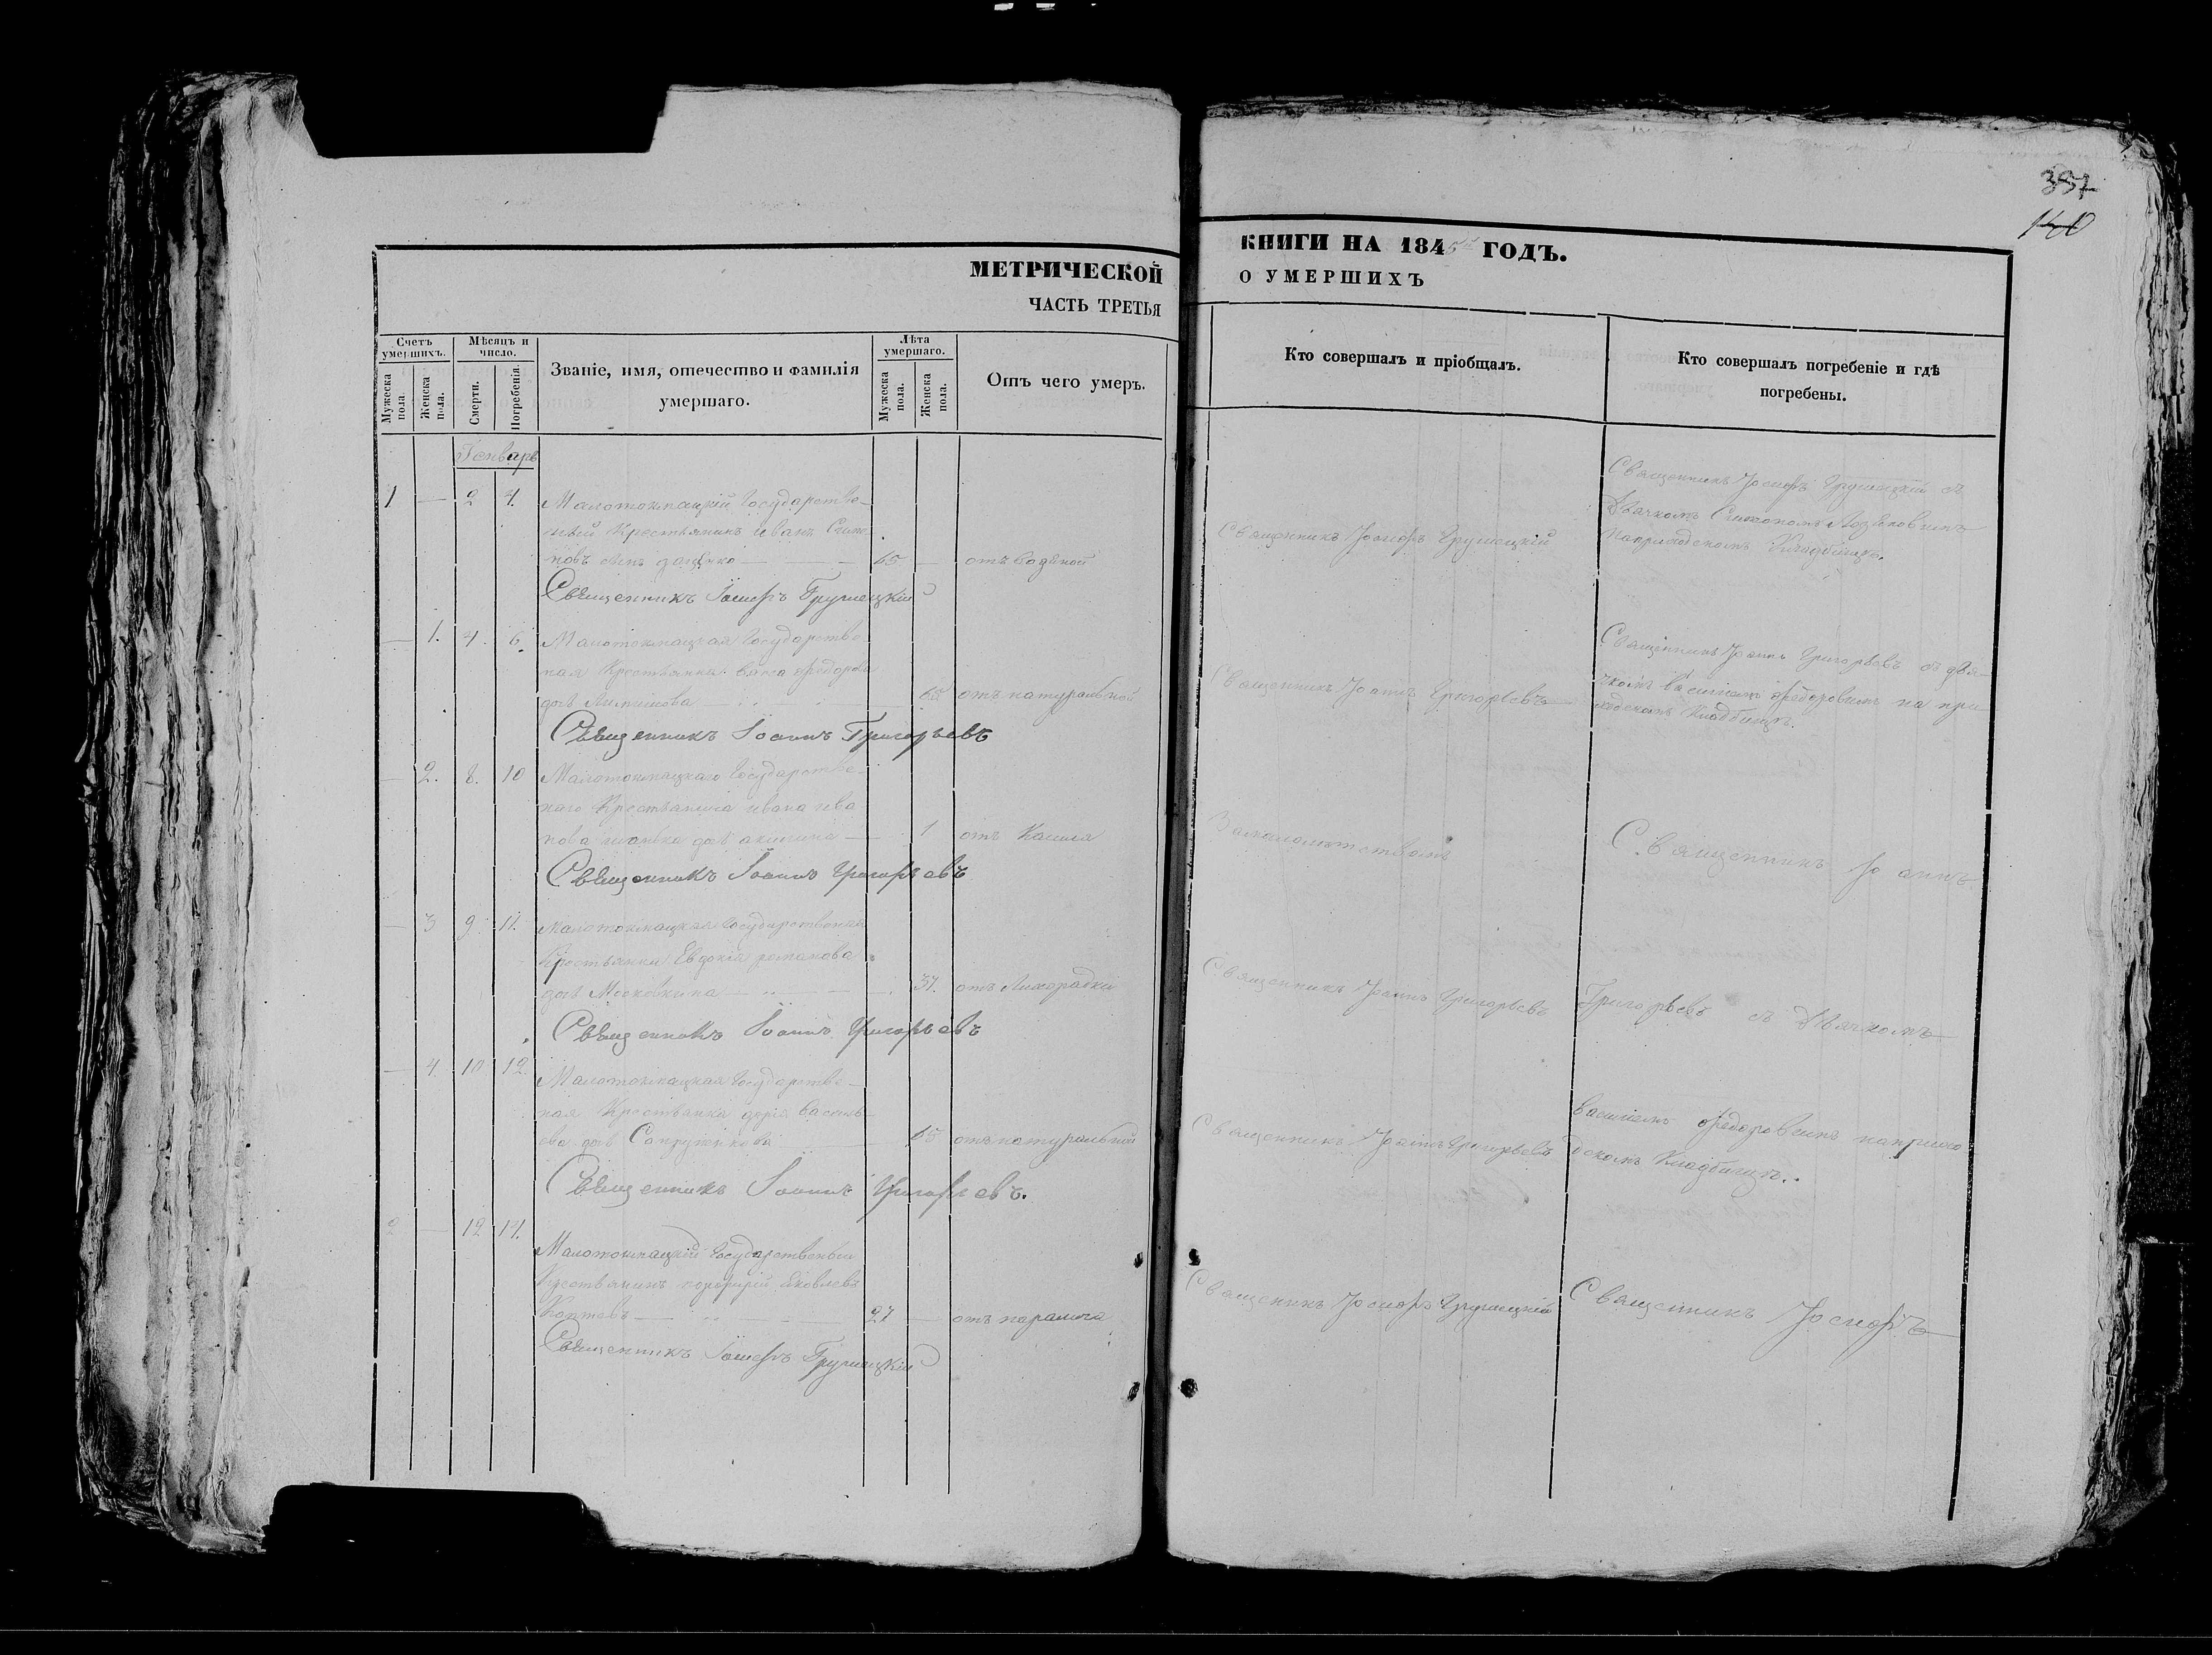 357
140
МЕТРИЧЕСКОЙ
ЧАСТЬ ТРЕТЬЯ
КНИГИ НА 1845й ГОДЪ.
О УМЕРШИХЪ
Счетъ умершихъ.
Мужеска пола.
Женска пола.
Мѣсяцъ и число.
Смерти.
Погребенія.
Званіе, имя, отечество и фамилія умершаго.
Лѣта умершаго.
Мужеска пола.
Женска пола.
Отъ чего умеръ.
Кто совершалъ и пріобщалъ.
Кто совершалъ погребеніе и гдѣ
погребены.
Генварь
1 — 2 4. Малотокмацкій Государстве-
Крестьянинъ иванъ Симо
новъ сынъ 65 — отъ водяной
Священникъ Іосифъ Грушецкій
Священникъ Іосифъ Грушецкій
Священникъ Іосифъ Грушецкій съ
Дьячкомъ Симономъ
Кладбищѣ.
— 1. 4. 6. Малотокмацкая Государстве
ная Крестьянка васса федорова
дочь 65 отъ натуральной
Священникъ Іоаннъ Григорьевъ
Священникъ Іоаннъ Григорьевъ
Священникъ Іоаннъ Григорьевъ съ дья-
чкомъ василіемъ федоровимъ на при
ходскомъ Кладбищѣ.
— 2. 8. 10 Малотокмацкаго Государстве-
наго Крестьянина ивана ива
нова дочь акилина — 1 отъ Кашля
Священникъ Іоаннъ Григорьевъ
Замалолетствомъ
Священникъ Іоаннъ
— 3 9. 11. Малотокмацкая Государственая
Крестьянка Евдокія романова
дочь Московкина — 37. отъ Лихорадки
Священникъ Іоаннъ Григорьевъ
Священникъ Іоаннъ Григорьевъ
Григорьевъ съ Дьячкомъ
— 4. 10. 12. Малотокмацкая Государстве-
ная Крестьянка василь-
ева дочь 65 отъ натуральной
Священникъ Іоаннъ Григорьевъ.
Священникъ Іоаннъ Григорьевъ
василіемъ федоровимъ наприхо
дскомъ Кладбищѣ.
2 — 12 14. Малотокмацкій Государственый
Крестьянинъ порфирій Яковлевъ
Коптевъ — 27 — отъ паралича
Священникъ Іосифъ Грушецкій
Священникъ Іосифъ Грушецкій
Священникъ Іосифъ